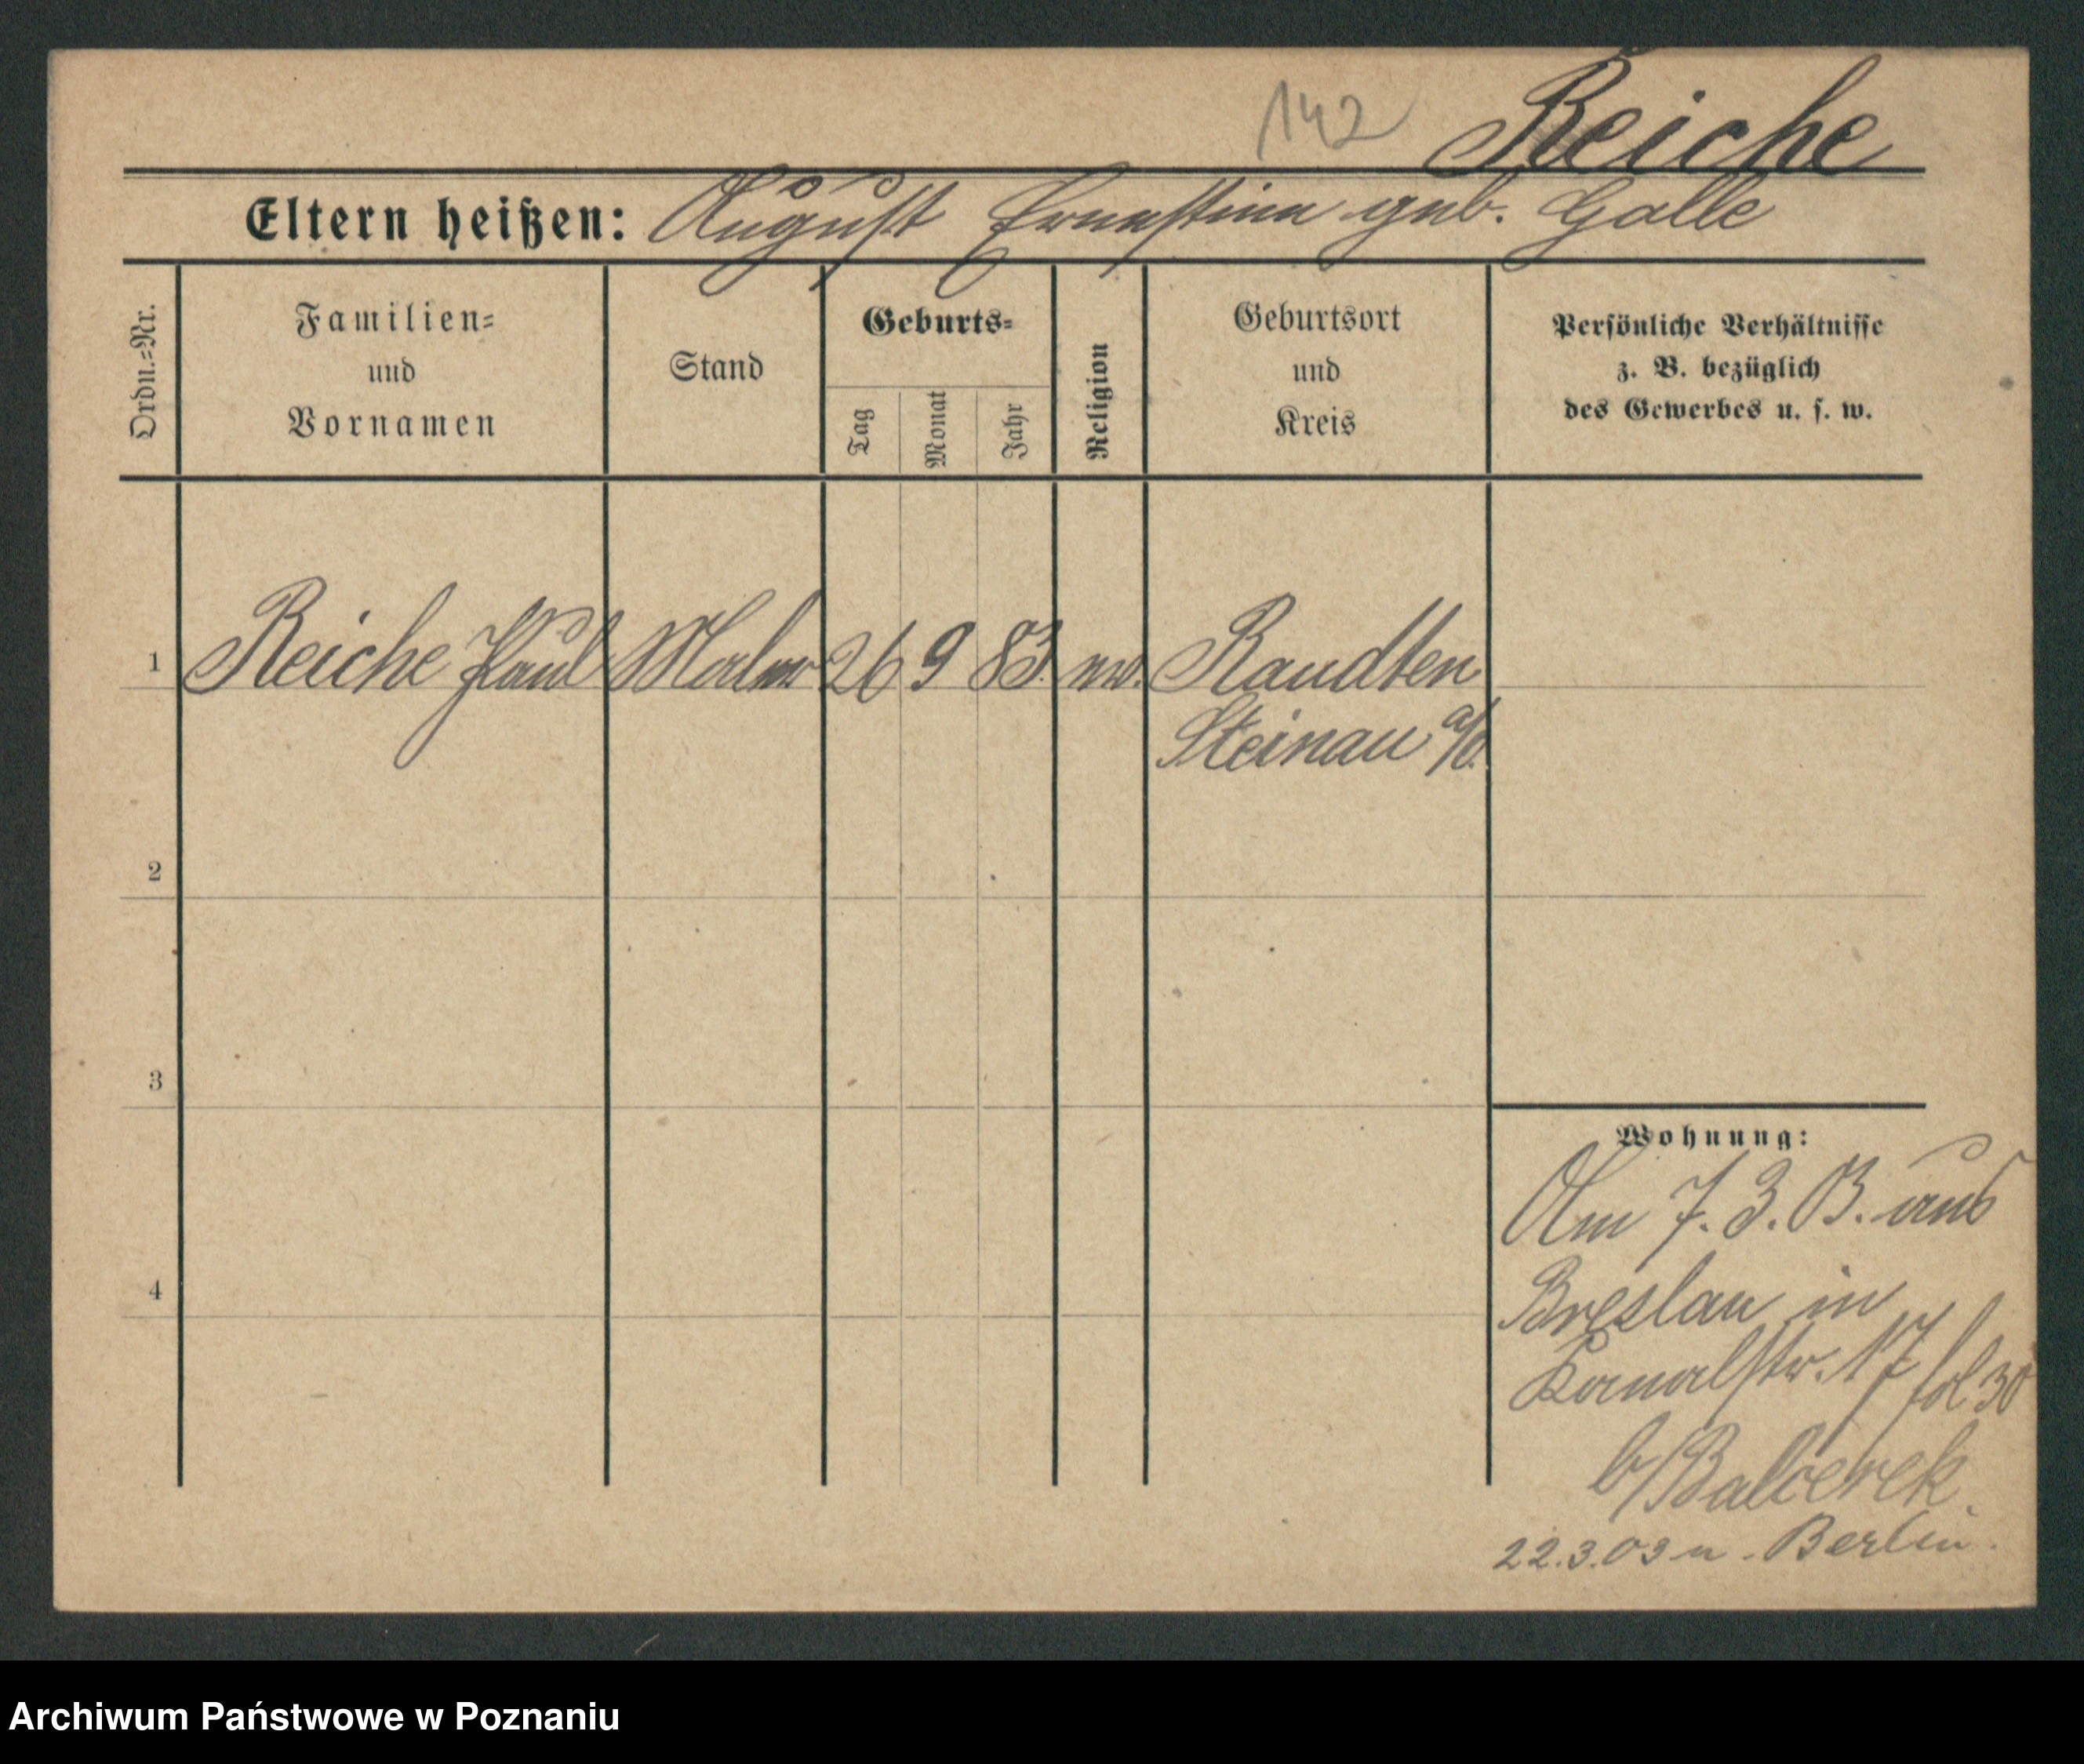 142 Reiche
Eltern heißen: August Ernestine geb. Galle
Ordn.=Nr.
Familien=
und
Vornamen
Stand
Geburts=
Tag
Monat
Jahr
Religion
Geburtsort
und
Kreis
Persönliche Verhältnisse
z. B. bezüglich
des Gewerbes u. s. w.
1 Reiche Paul Maler 26 9 83. ev. Raudten
Steinau a/O.
2
3
4
Wohnung:
Am 7. 3. 03. aus
Breslau in
Kanalstr. 17
b/Balcerek.
22.3.03 n. Berlin.
Archiwum Państwowe w Poznaniu